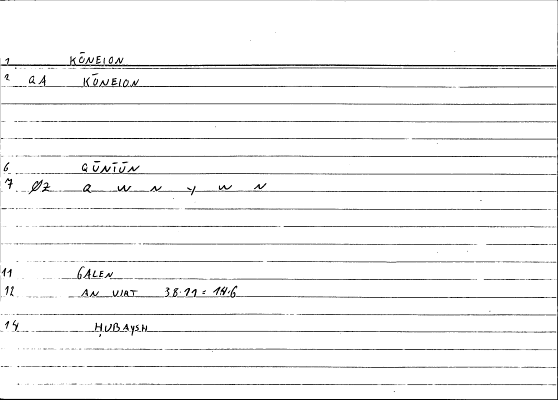 1 KŌNEION
2 QA KŌNEION
6 QŪNIŪN
7 ØZ Q W N Y W N
11 GALEN
12 AN VIRT 38.11 = 14.6
14 ḤUBAYSH